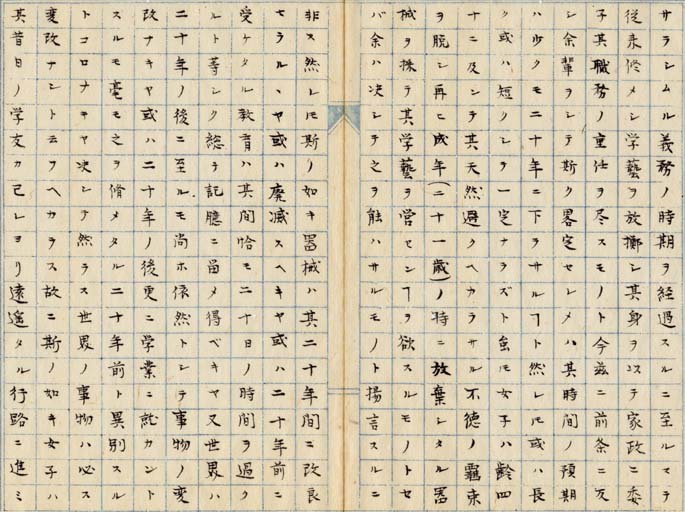 サラシムル義務ノ時期ヲ経過スルニ至ルマテ
従来修メシ学藝ヲ放擲シ其身ヲ以テ家政ニ委
子其職務ノ重任ヲ尽スモノト今茲ニ前条ニ反
シ余輩ヲシテ斯ク畧定セシメハ其時間ノ預期
ハ少クモ二十年ニ下ラサルヿト然レ𪜈或ハ長
ク或ハ短クシテ一定ナラズト虽モ女子ハ齡四
十ニ及ンテ其天然避クヘカラサル不徳ノ羈束
ヲ脱シ再ヒ成年(二十一歳)ノ時ニ放棄シタル器
械ヲ採テ其学藝ヲ営マンヿヲ欲スルモノトセ
バ余ハ决シテ之ヲ能ハサルモノト揚言スルニ
非ス然レ𪜈斯ノ如キ器械ハ其二十年間ニ改良
セラルヽヤ或ハ廃滅スヘキヤ或ハ二十年前ニ
受ケタル教育ハ其間恰モ二十日ノ時間ヲ過ク
ルト等シク總テ記臆ニ畄メ得ベキヤ又世界ハ
二十年ノ後ニ至ルモ尚ホ依然トシテ事物ノ変
改ナキヤ或ハ二十年ノ後更ニ学業ニ就カント
スルモ毫モ之ヲ脩メタル二十年前ト異別スル
トコロナキヤ决シテ然ラス世界ノ事物ハ必ス
変改ナシトモ云フヘカラス故ニ斯ノ如キ女子ハ
其昔日ノ学友カ己レヨリ遠遥タル行路ニ進ミ